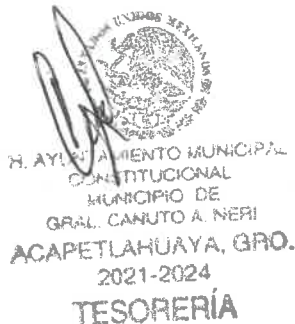 UNIDOS MEXICANOS
H. AYUNTAMIENTO MUNICIPAL
CONSTITUCIONAL
MUNICIPIO DE
GRAL. CANUTO A. NERI
ACAPETLAHUAYA, GRO.
2021-2024
TESORERÍA